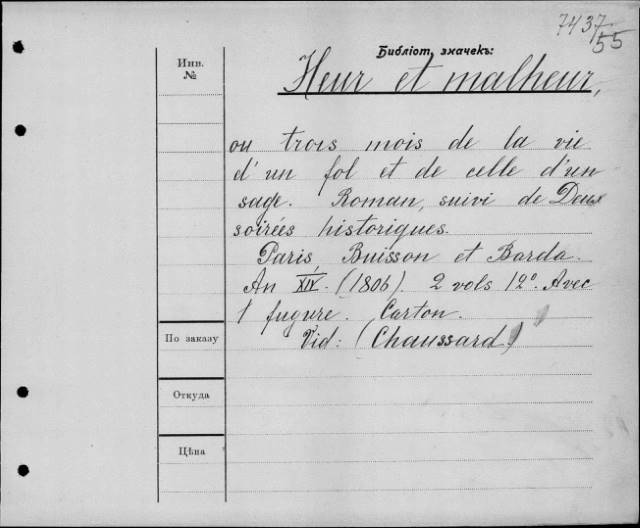 7437/55
Библіот. значекъ:
Инв.
№
Heur et malheur,
ou trois mois de la vie
d'un fol et de celle d'un
sage. Roman, suivi de Deux
soirées historiques.
Paris, Buisson et Barda.
An XIV. (1806). 2 vols 12°. Avec
1 fugure. Carton.
Vid: (Chaussard)
По заказу
Откуда
Цѣна